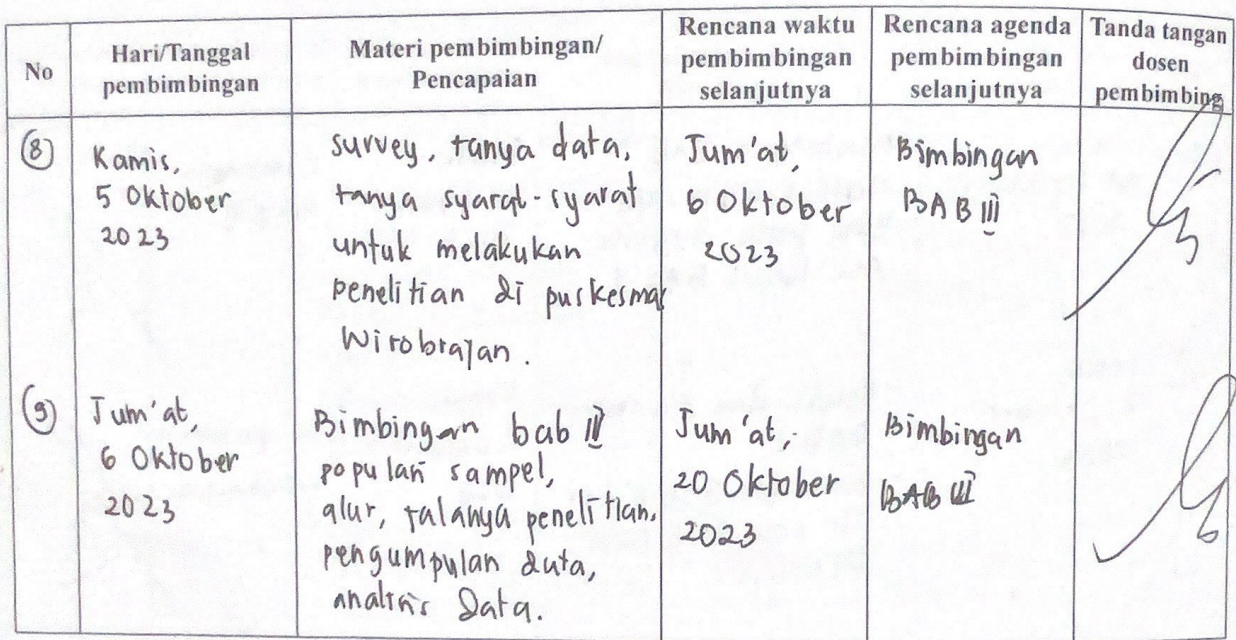 No
Hari/Tanggal
pembimbingan
Materi pembimbingan/
Pencapaian
Rencana waktu
pembimbingan
selanjutnya
Rencana agenda
pembimbingan
selanjutnya
Tanda tangan
dosen
pembimbing
8
Kamis,
5 Oktober
2023
survey, tanya data,
tanya syarat-syarat
untuk melakukan
penelitian di puskesmas
Wirobrajan.
Jum'at,
6 Oktober
2023
Bimbingan
BAB III
9
Jum'at,
6 Oktober
2023
Bimbingan bab
populasi sampel,
alur, jalanya penelitian,
pengumpulan data,
analisis data.
Jum'at,
20 Oktober
2023
Bimbingan
BAB III